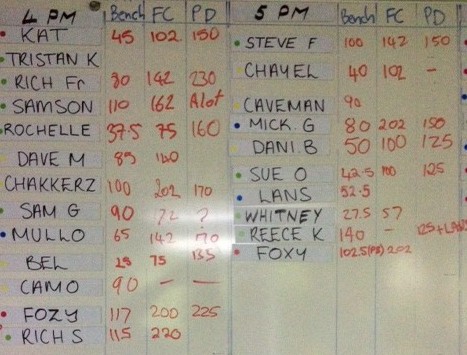 4 PM Bench FC PD
KAT 45 102 150
TRISTAN K
RICH Fr 80 142 230
SAMSON 110 162 Alot
ROCHELLE 37.5 75 160
DAVE M 85 140
CHAKKERZ 100 202 170
SAM G 90 ?
MULLO 65 142
BEL 75 135
CAMO 90 - -
FOZY 117 200 225
RICH S 115 220
5 PM Bench FC PD
STEVE F 100 142 150
CHAYEL 40 102 -
CAVEMAN 90
MICK.G 80 202 150
DANI.B 50 100 125
SUE O 42.5 100 125
LANS 52.5
WHITNEY 27.5 57
REECE K 140 -
FOXY 102.5 202